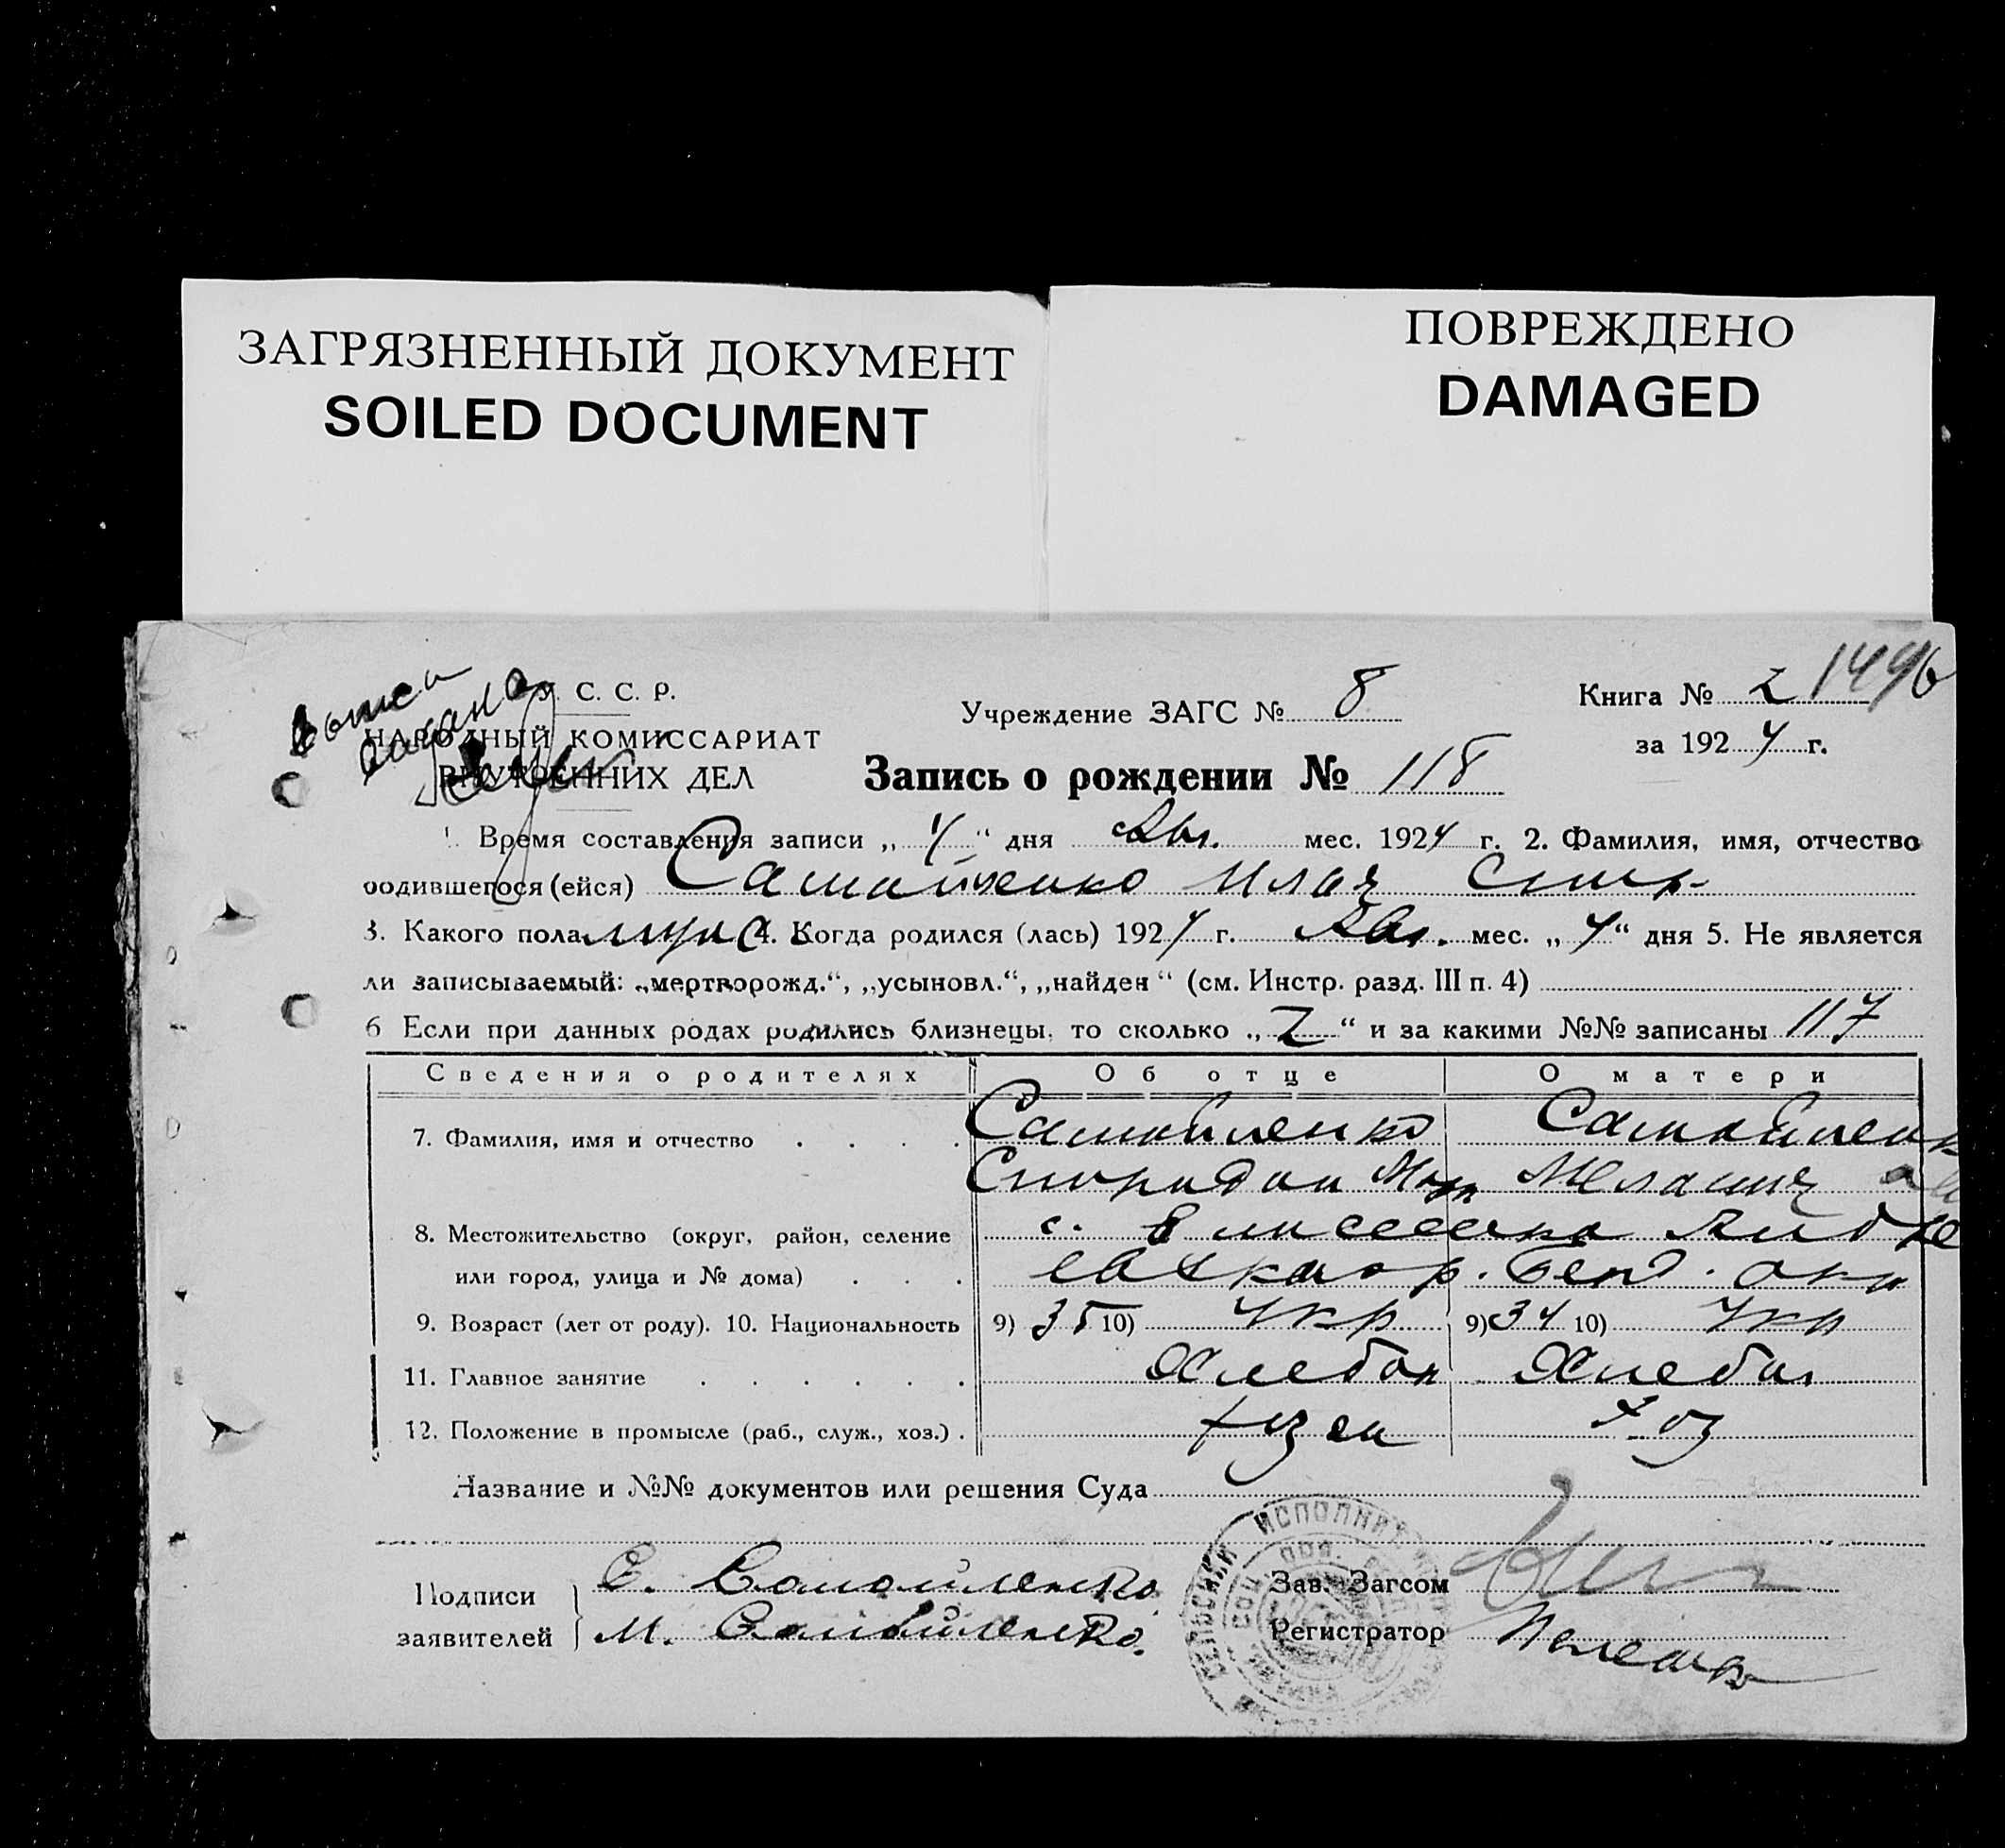 ЗАГРЯЗНЕННЫЙ ДОКУМЕНТ
SOILED DOCUMENT
ПОВРЕЖДЕНО
DAMAGED
У. С. С. Р.
НАРОДНЫЙ КОМИССАРИАТ
ВНУТРЕННИХ ДЕЛ
Учреждение ЗАГС № 8
Книга № 2 1496
за 1924 г.
Запись о рождении № 118
1. Время составления записи „ 4 “ дня Авг. мес. 1924 г. 2. Фамилия, имя, отчество
родившегося (ейся) Самойленко Спир
3. Какого пола муж 4. Когда родился (лась) 1924 г. Авг. мес. „ 4 “ дня 5. Не является
ли записываемый: „мертворожд.“, „усыновл.“, „найден“ (см. Инстр. разд. III п. 4)
6 Если при данных родах родились близнецы, то сколько „ 2 “ и за какими №№ записаны 117
Сведения о родителях Об отце О матери
7. Фамилия, имя и отчество . . . . Самойленко Самойленк
Спиридон
8. Местожительство (округ, район, селение с.
или город, улица и № дома) . . . р.
9. Возраст (лет от роду). 10. Национальность 9) 35 10) Укр 9) 34 10) Укр
11. Главное занятие . . . . . . Хлебоп Хлебоп
12. Положение в промысле (раб., служ., хоз.) . хозяин хоз
Название и №№ документов или решения Суда
Подписи заявителей
С. Самойленко
М. Самойленко.
Зав. Загсом
Регистратор